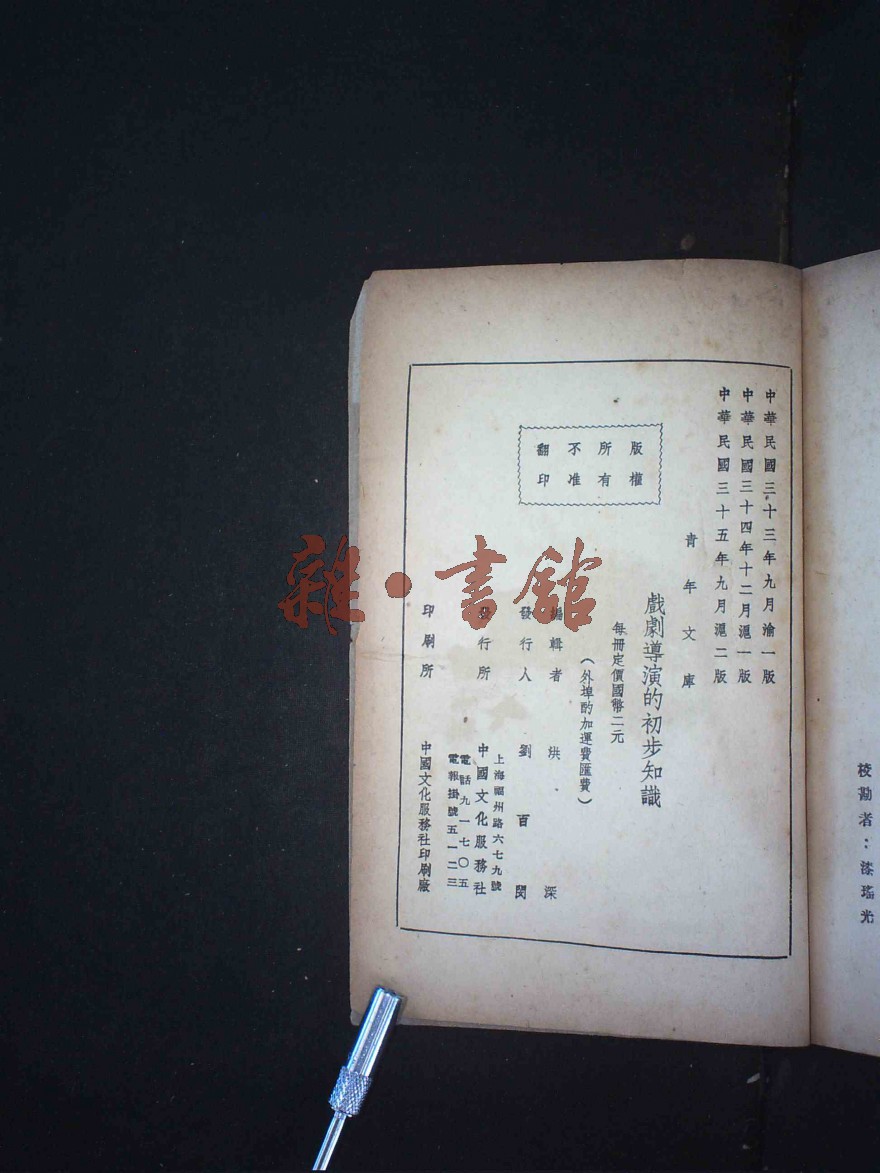 校勘者：漆瑤光
中華民國三十三年九月渝一版
中華民國三十四年十二月滬一版
中華民國三十五年九月滬二版
青年文庫
版權
所有
不准
翻印
戲劇導演的初步知識
每冊定價國幣二元
（外埠酌加運費匯費）
編輯者 洪深
發行人 劉百閔
發行所 中國文化服務社
上海福州路六七九號
電話九一七〇五
電報掛號五一二三
印刷所 中國文化服務社印刷廠
雜·書館